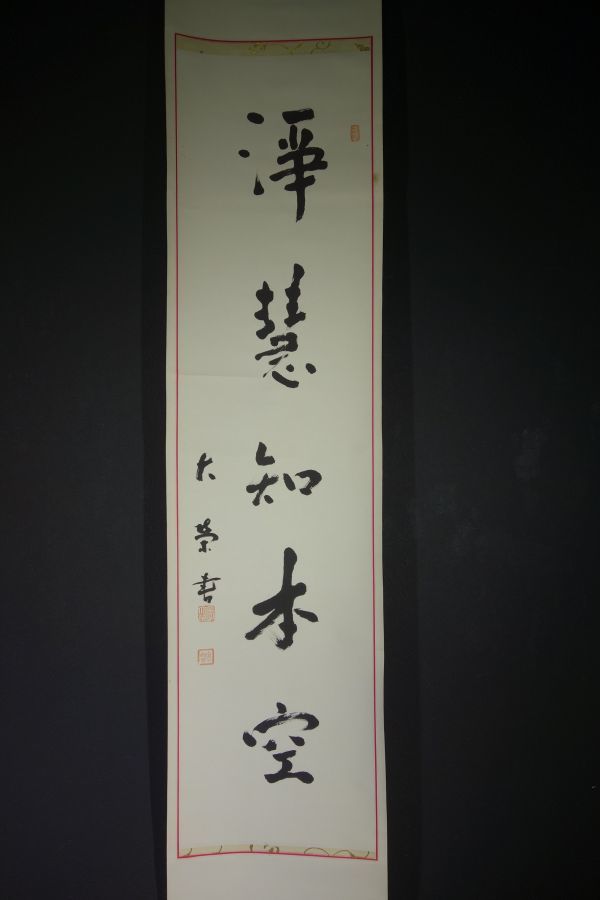 淨慧知本空
大榮書